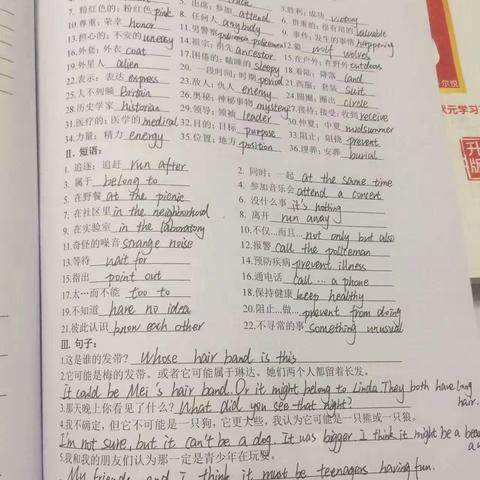 7. 粉红色的;粉红色 pink 5. 出席;参加 attend 3.胜利;成功 victory
10.尊重;荣幸 honor 8. 任何人 anybody 6. 贵重的;很有用的 valuable
13.担心的;不安的 uneasy 11.男警察 policeman policemen 9.事件;发生的事情 happening
16.外套;外衣 coat 14.祖宗;祖先 ancestor 12.狼 wolf wolves
19.外星人 alien 17.困倦的;瞌睡的 sleepy 15.在户外;在野外 outdoors
22.表示;表达 express 20. 一段时间;时期 period 18.着陆;降落 land
25.大不列颠 Britain 23.敌人;仇人 enemy 21.西服;套装 suit
28.历史学家 historian 26.奥秘;神秘事物 mystery 24.圆圈;圈出 circle
31.医疗的;医学的 medical 29.领导;领袖 leader 27.接待;接受;收到 receive
34.力量;精力 energy 32.目的;目标 purpose 30.仲夏;中夏 midsummer
35.位置;地方 position 33.阻止;阻挠 prevent
36.埋葬;安葬 burial
II. 短语:
1. 追逐;追赶 run after 2. 同时;一起 at the same time
3. 属于 belong to 4. 参加音乐会 attend a concert
5. 在野餐 at the picnic 6. 没什么事 it's nothing
7. 在社区里 in the neighborhood 8. 离开 run away
9. 在实验室 in the laboratory 10.不仅…而且… not only but also
11.奇怪的噪音 strange noise 12.报警 call the policeman
13.等待 wait for 14.预防疾病 prevent illness
15.指出 point out 16.通电话 call ... a phone
17.太…而不能 too to 18.保持健康 keep healthy
19.不知道 have no idea 20.阻止…做… prevent from doing
21.彼此认识 know each other 22.不寻常的事 something unusual
III. 句子:
1.这是谁的发带? Whose hair band is this
2.它可能是梅的发带。或者它可能属于琳达。她们两个人都留着长发。
It could be Mei's hair band. Or it might belong to Linda. They both have long hair.
3.那天晚上你看见了什么? What did you see that night?
4.我不确定,但它不可能是一只狗,它更大些,我认为它可能是一只熊或一只狼。
I'm not sure, but it can't be a dog. It was bigger. I think it might be a
5.我和我的朋友们认为那一定是青少年在玩耍。
My friends and I think it must be teenagers having fun.
升
版